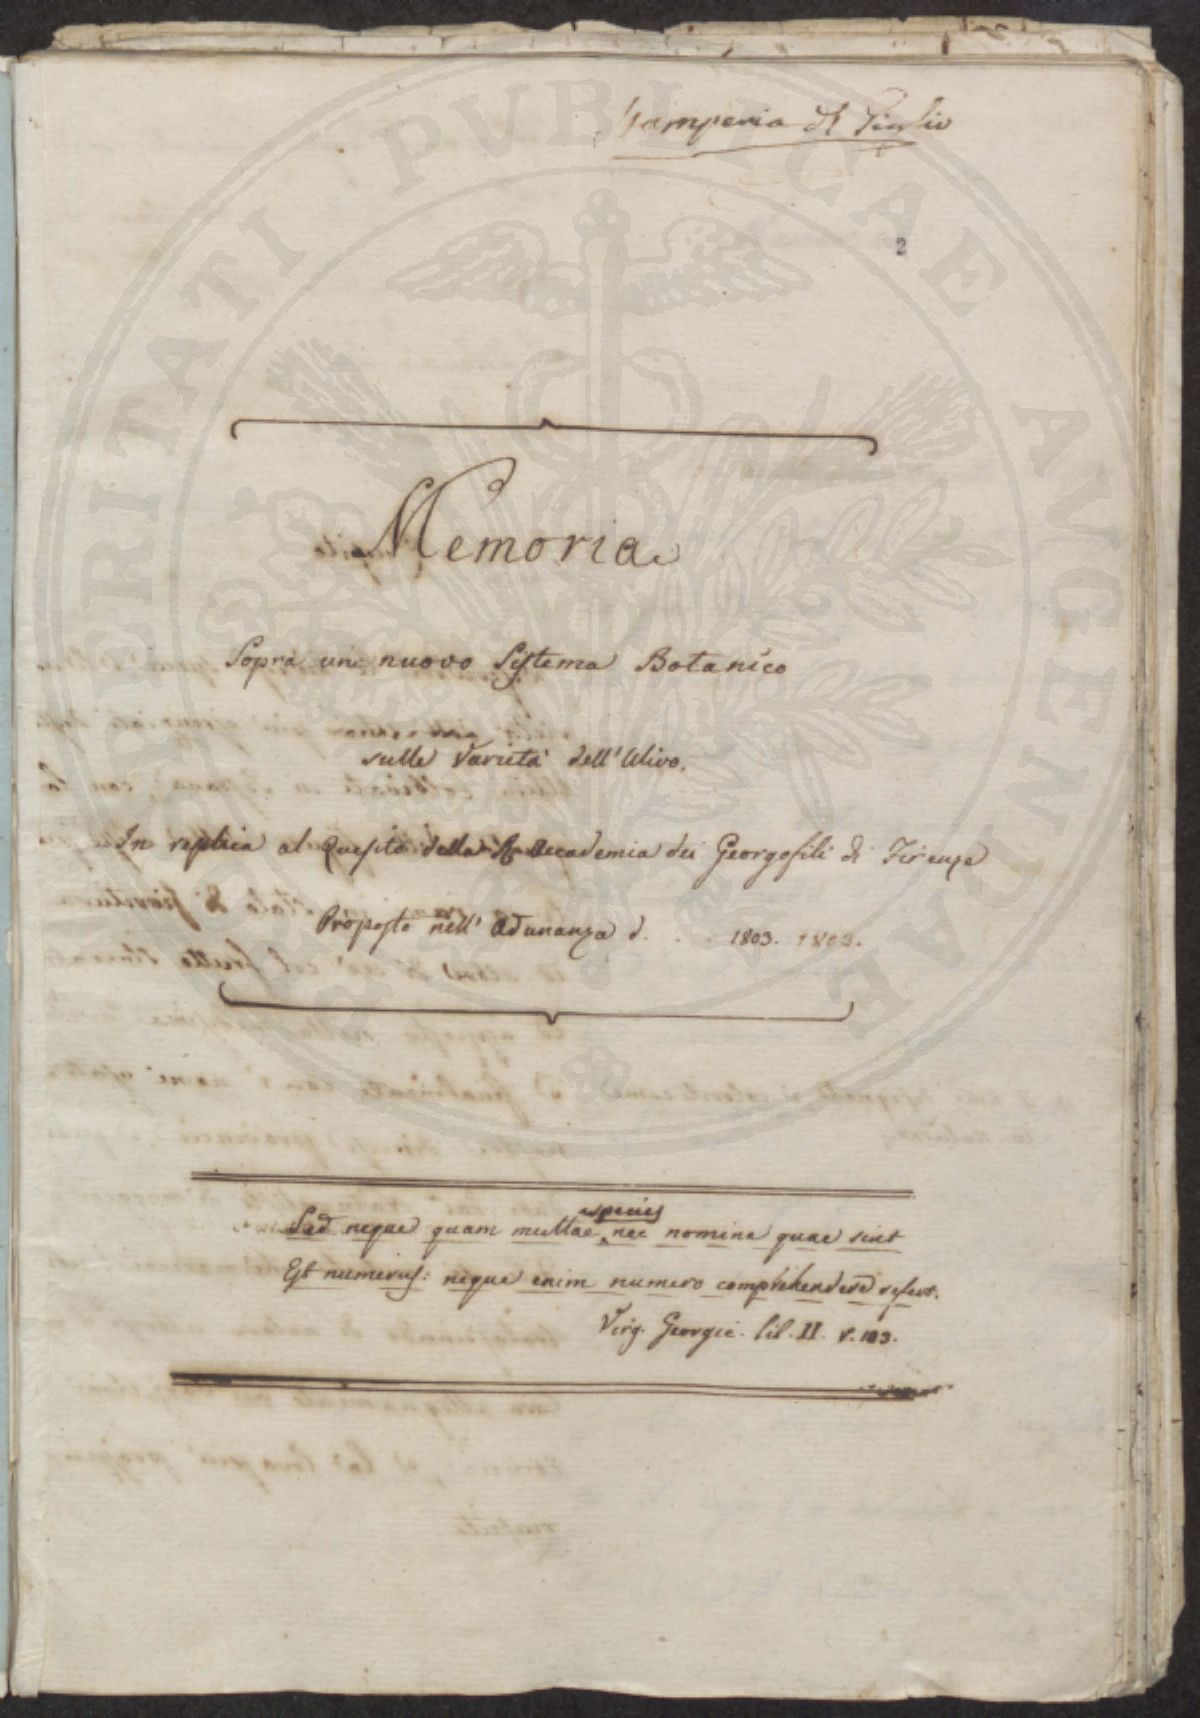 Stamperia di Giulio
2
Memoria
Sopra un nuovo Sistema Botanico
sulle Varietà dell'Ulivo.
In replica al Quesito della R. Accademia dei Georgofili di Firenze
Proposto nell' Adunanza d. . . . 1803. 1803.
Sed neque quam multae species nec nomina quae sint
Est numerus: neque enim numero comprehendere refert.
Virg. Georgic. lib. II. v. 103.
PVBLICAE
VERITATI
AVGENDAE